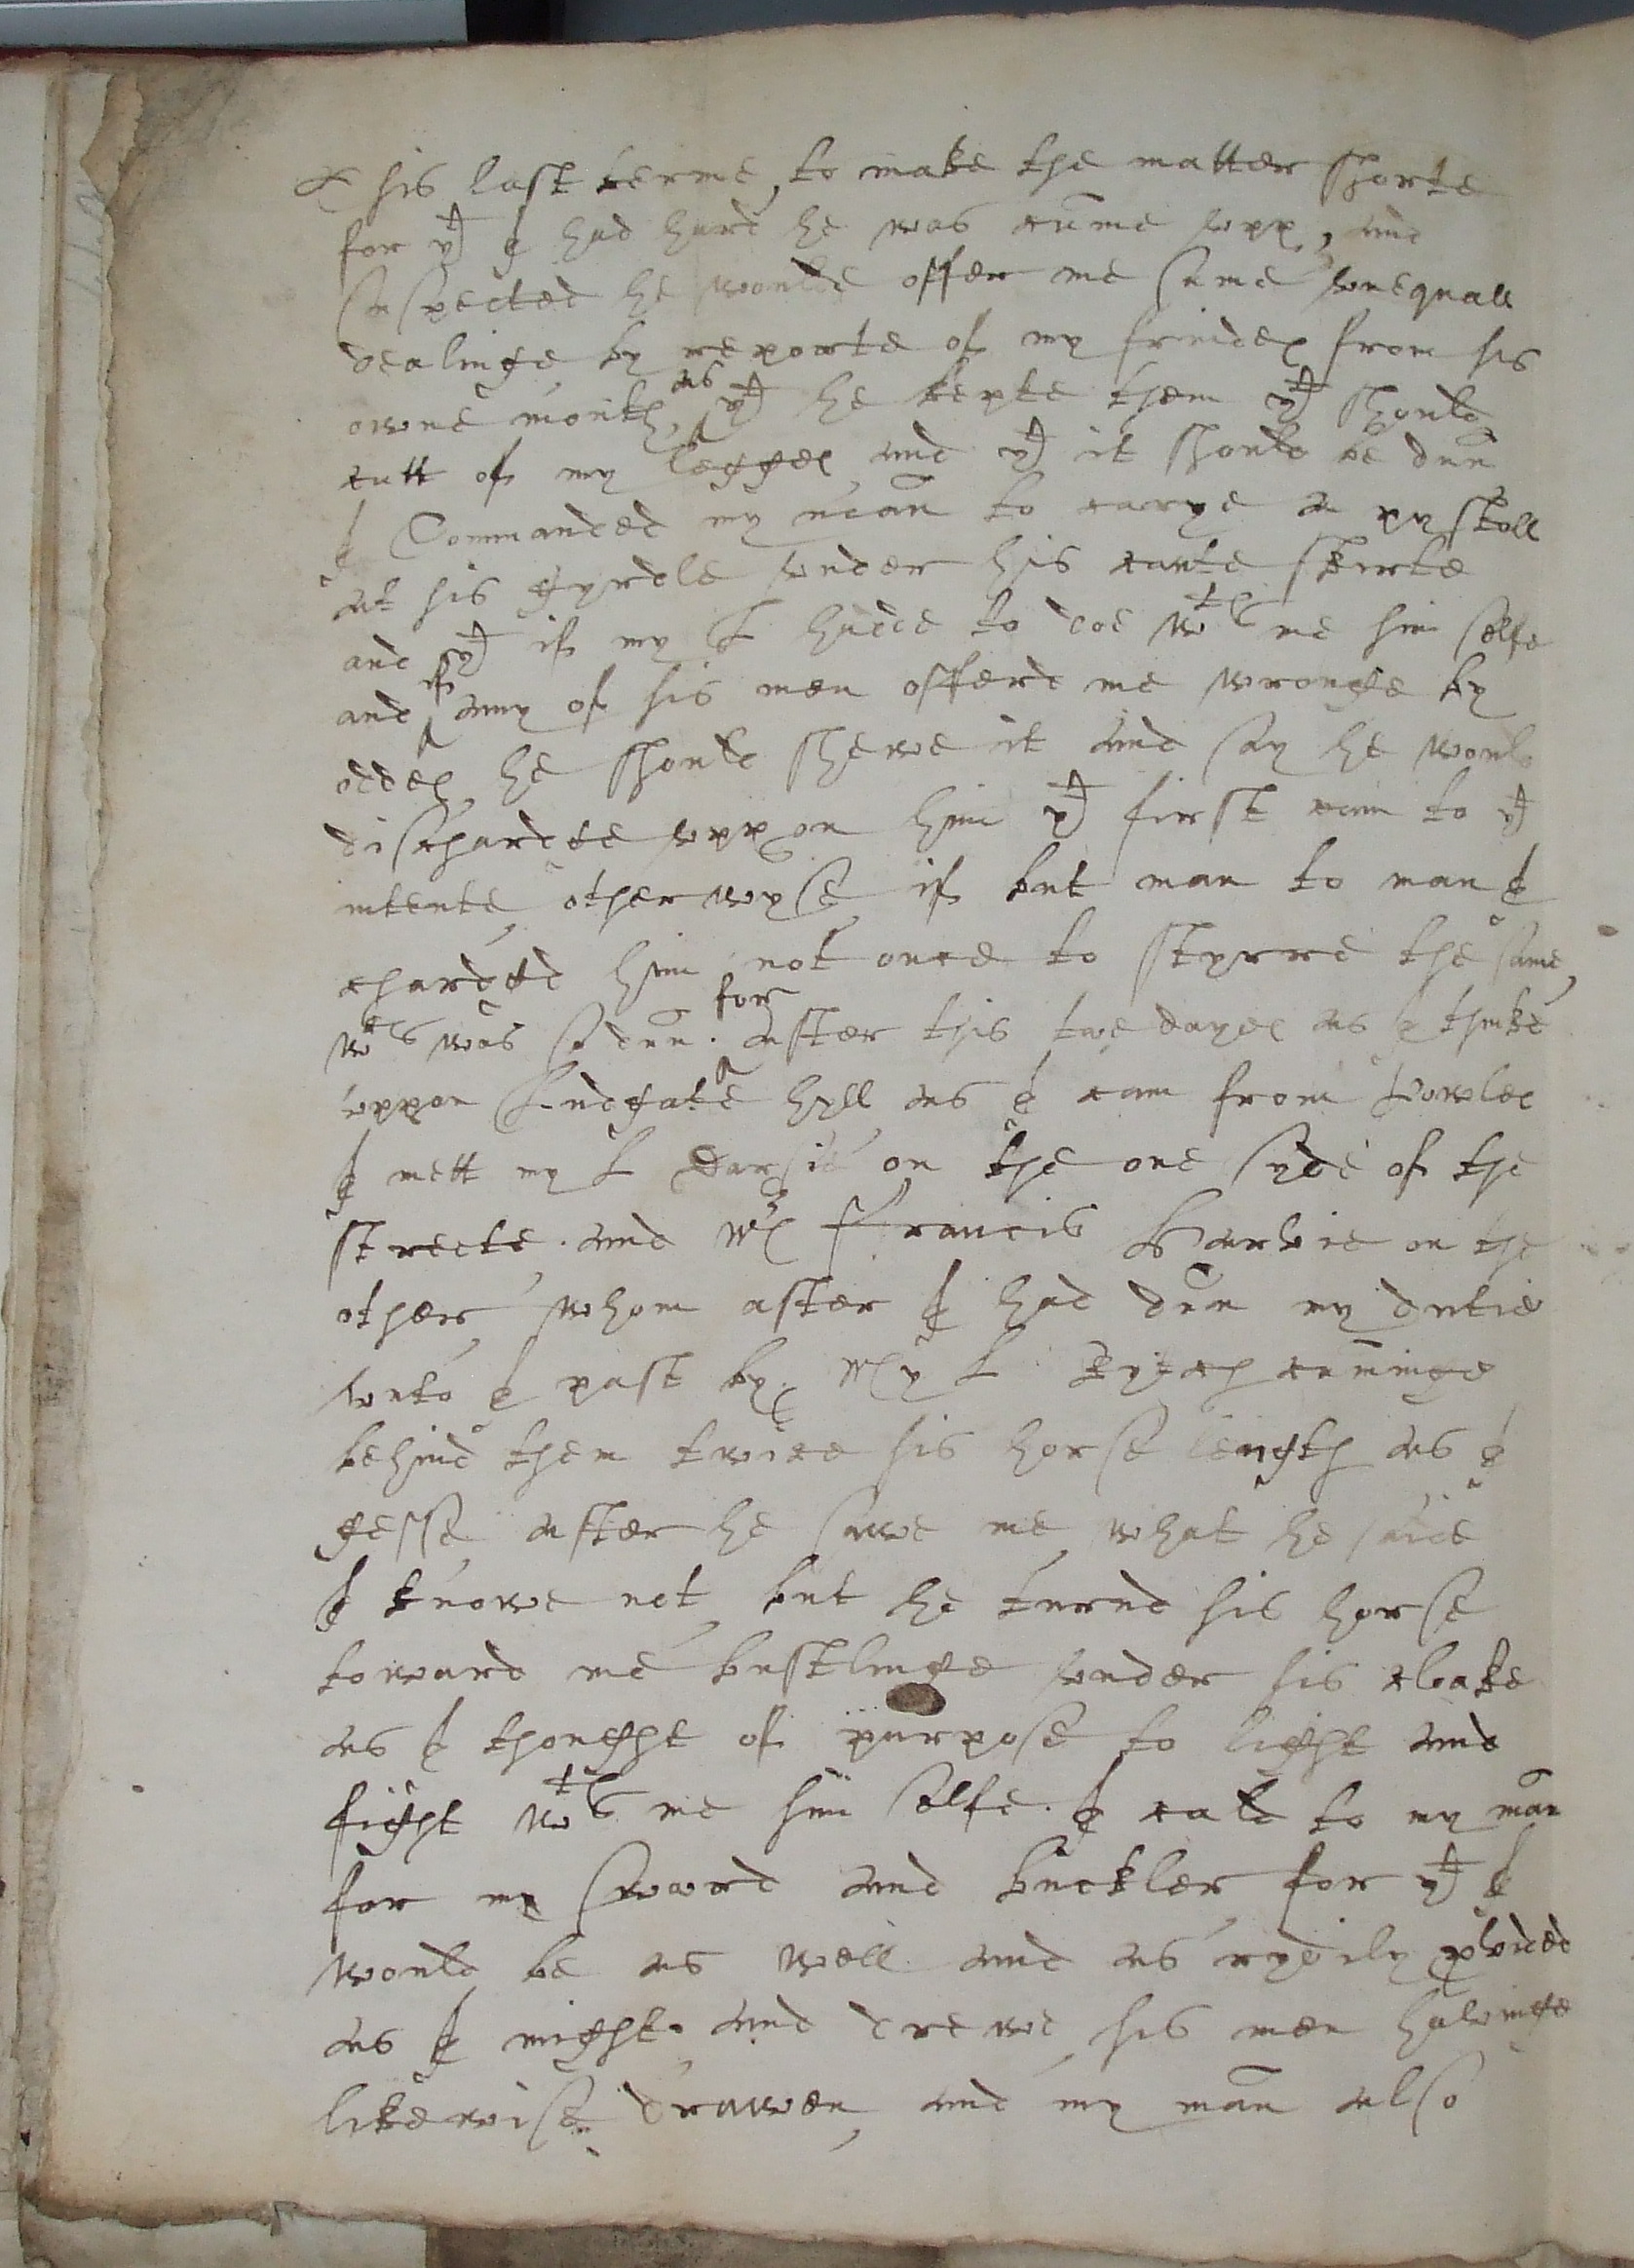 This last terme, to make the matter shorte
for yt I had hard he was cume upp, and
suspected he woulde offer me sume unequall
dealinge by reporte of my frindes from his
owne mouth, as yt he kepte them yt should
cutt of my legges and yt it should be dun
I Commanded my man to carye a pystoll
at his gyrdle under his cante skirte
and yt if my L hadde to doe wth me him selfe
and if anny of his men offerd me wronge by
oddes he should shewe it and say he would
dischardge uppon him yt first cam to yt
intente, otherwyse if but man to man I
chardged him not once to styrre the same,
wch was so dun. for after this twe dayes as I thinke
uppon Ludgate hyll as I cam from Powles
I mett my L Darsie on the one syde of the
streete. and Mr Francis Harvie on the
other, whom after I had dun my dutie
unto I past by. My L Rytch cumminge
behind them twice his horse length as I
gesse after he sawe me, what he saide
I knowe not, but he turnd his horse
toward me bustlinge under his cloake
as I thought of purpose to light and
fight wth me him selfe. I cald to my man
for my sword and buckler for yt I
would be as well and as rydily provided
as I might. and drewe, his men havinge
likewise drawen, and my man also